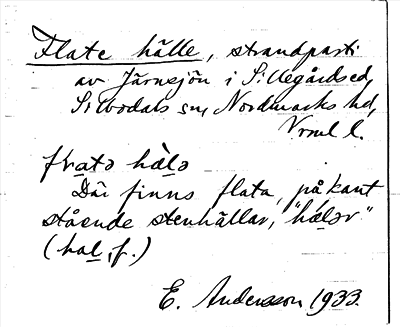 Flate hälle, strandparti
av Järnsjön i Sillegårdsed,
Silbodals sn, Nordmarks hd,
Vrml l.
flatə hælə
Där finns flata, på kant
stående stenhällar, "hælər"
(hal, f.)
E. Andersson 1933.